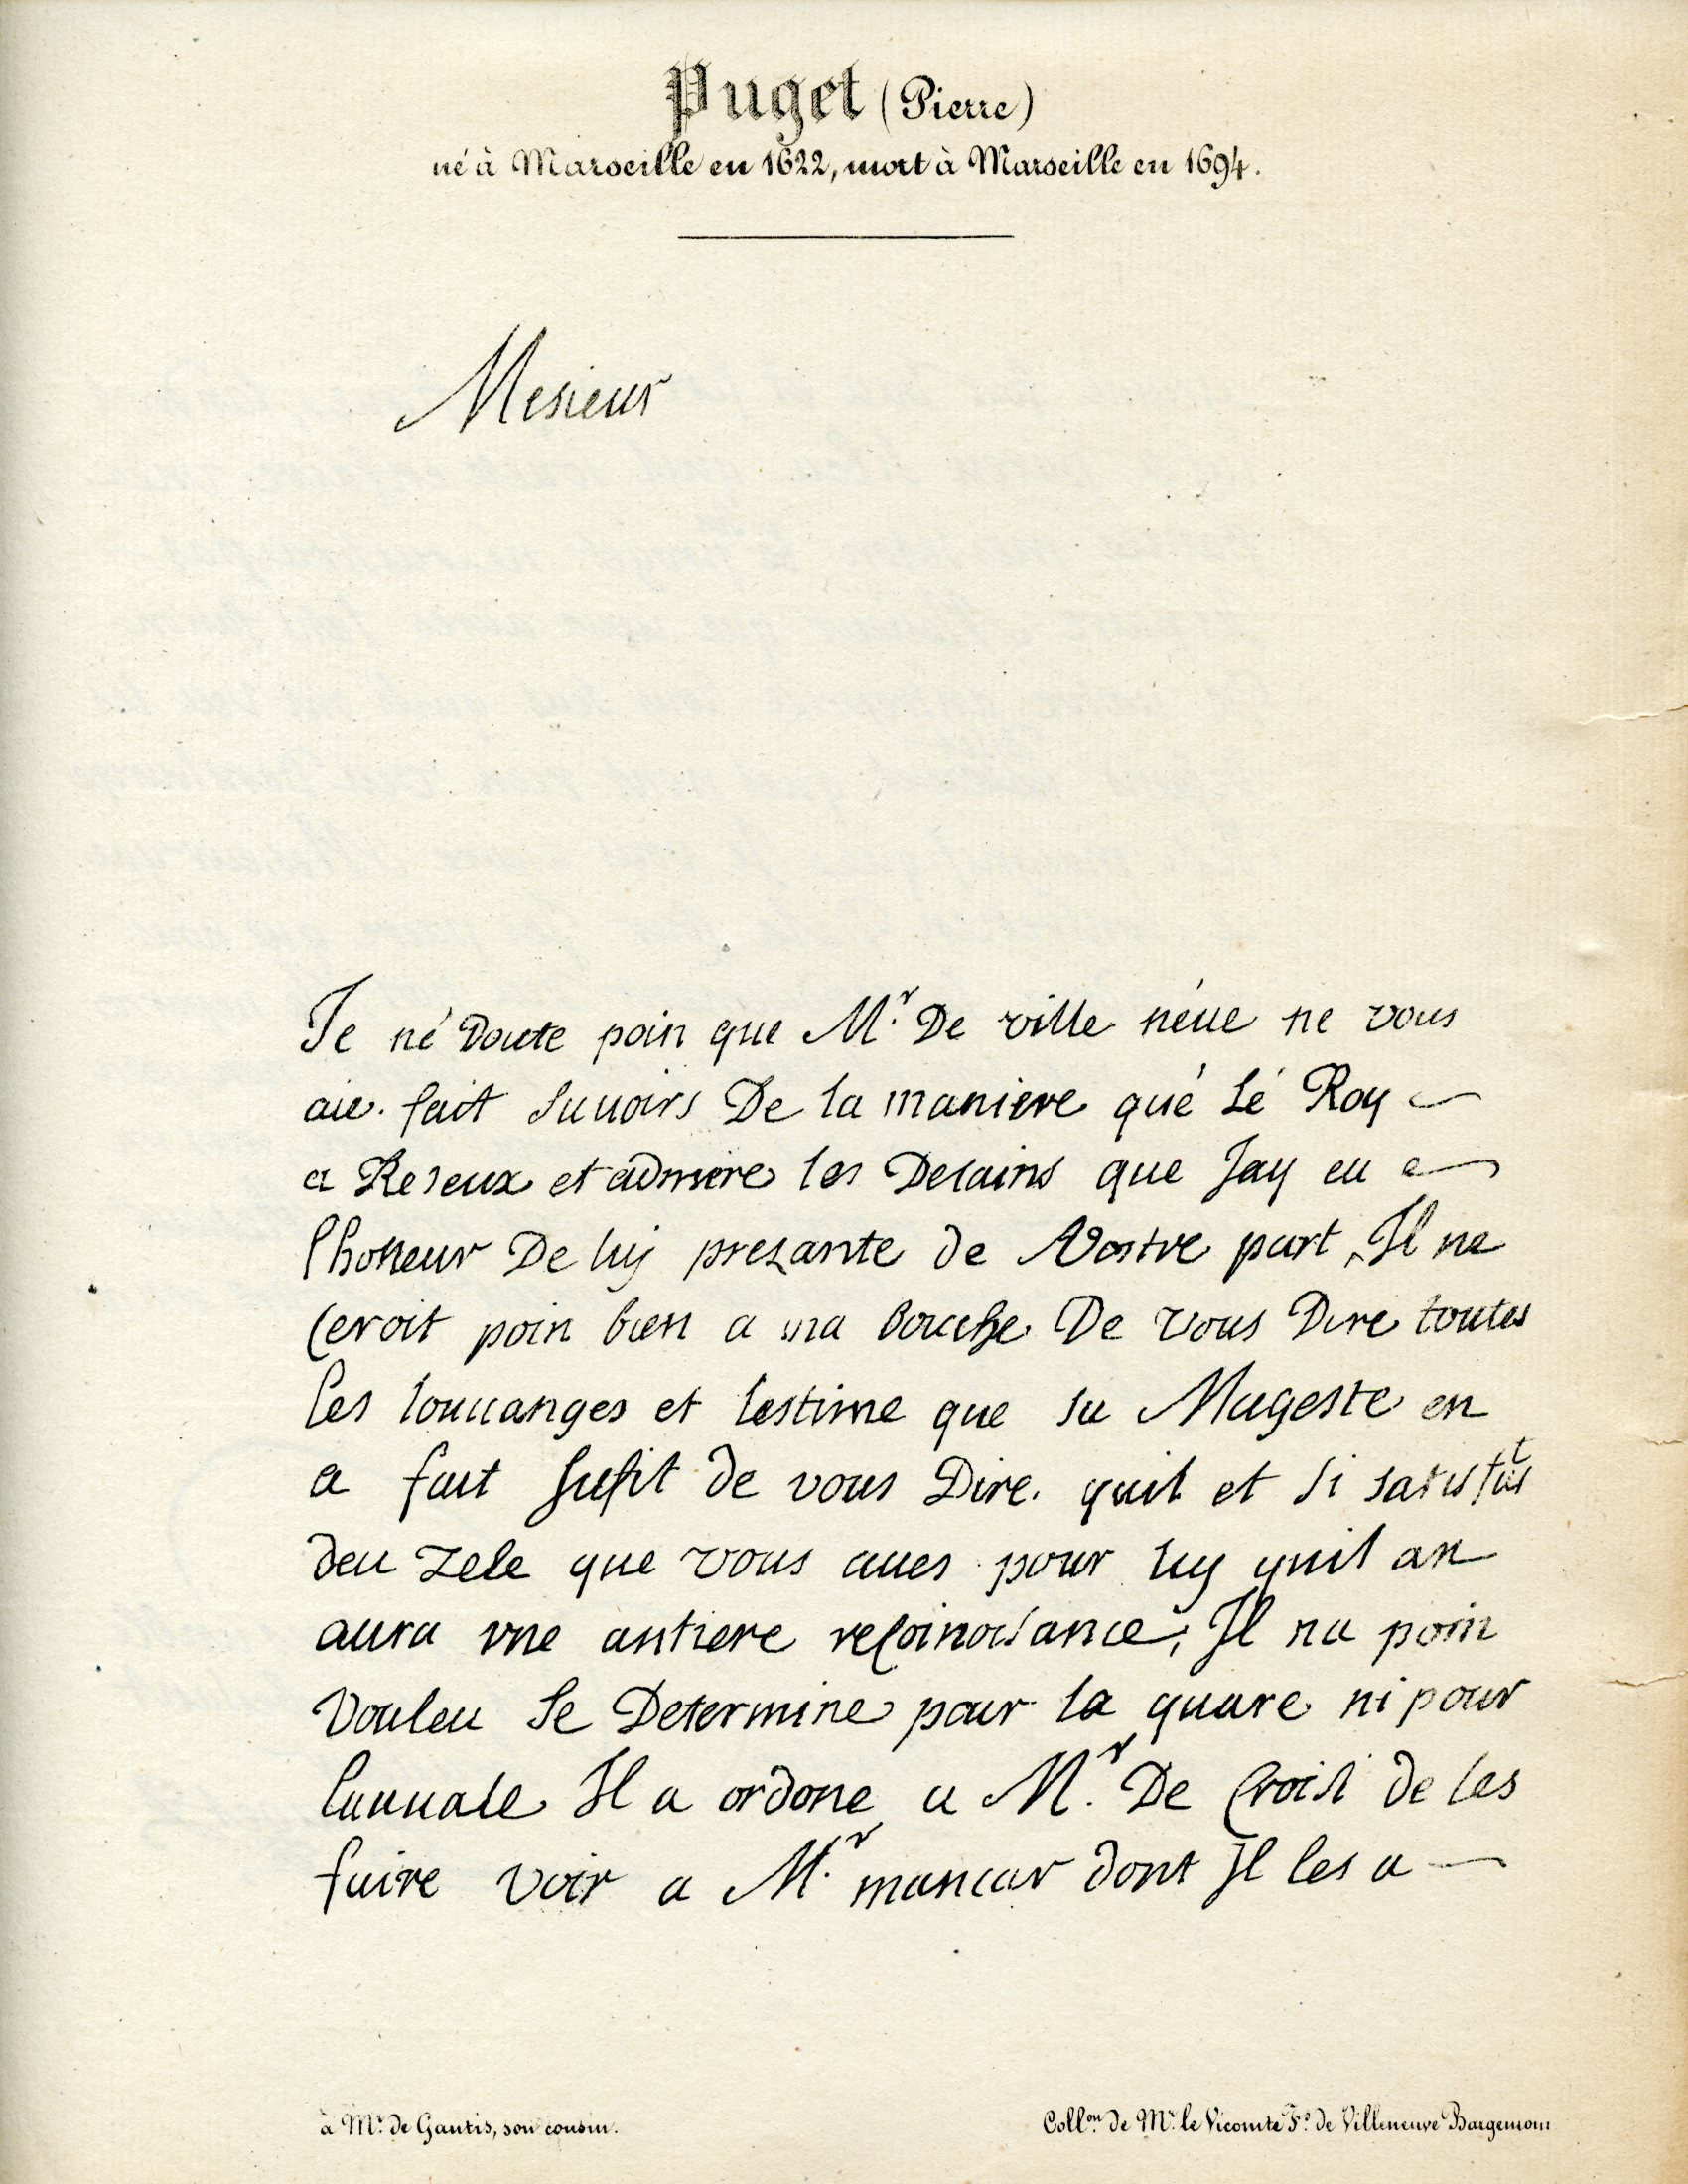 Puget (Pierre)
né à Marseille en 1622, mort à Marseille en 1694.
Mesieur
Je né Doute poin que M.r De ville neuue ne vous
aie fait sauoirs De la maniere qué Lé Roy
a Reseux et admire les Desains que Jay eu
lhoneur De luy prezante de Vostre part, Il ne
seroit poin bien a ma bouche De vous Dire toutes
les louuanges et lestime que sa Mageste en
a fait sufit de vous Dire quil et si satisfait
deu zele que vous aues pour luy quil an
aura vne antiere reconoisance; Il na poin
Vouleu se Determine pour la quare ni pour
lauuale Il a ordone a M.r De Croisi de les
faire voir a M.r mansar dont Il les a
à M.r de Gantis, son cousin.
Coll.on de M.r le Vicomte F.s de Villeneuve Bargemont